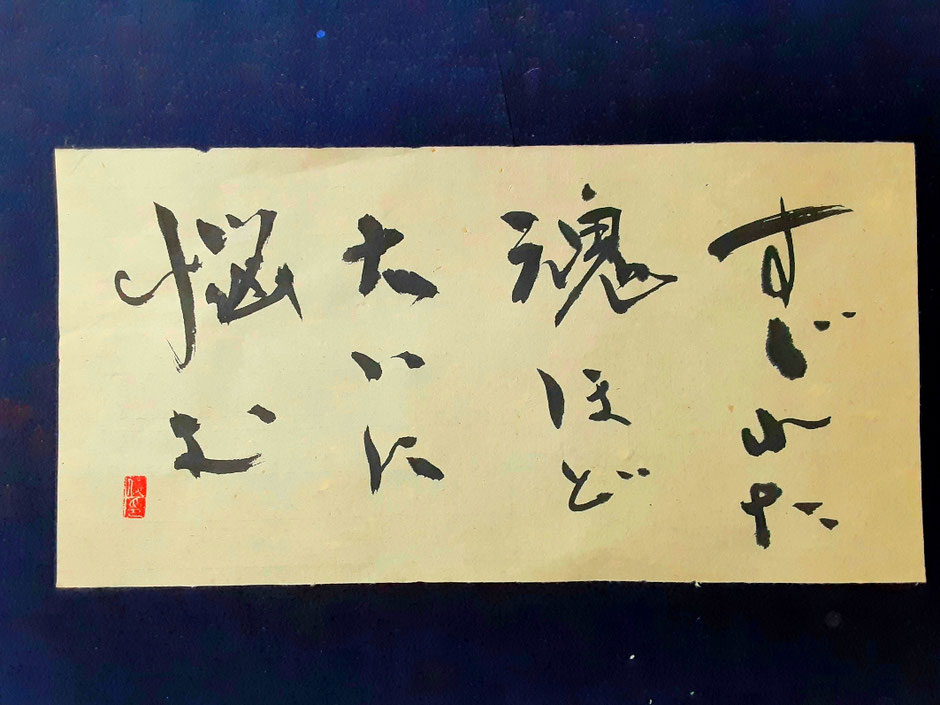 すぐれた
魂ほど
大いに
悩む